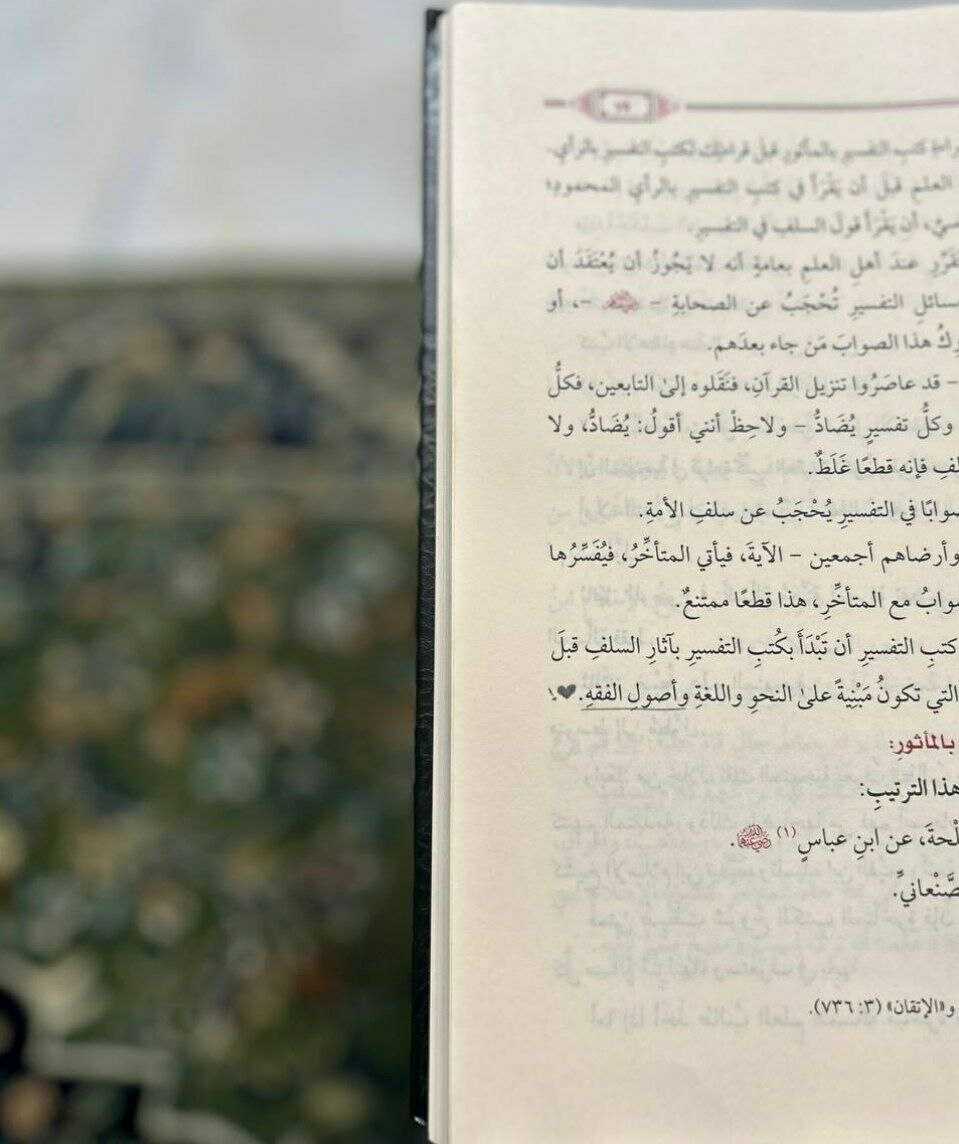 كتب التفسير بالمأثور قبل قراءتك لكتب التفسير بالرأي.
العلم قبل أن يَقْرَأَ في كتب التفسير بالرأي المحمود؛
أن يَقْرَأَ قولَ السلفِ في التفسيرِ.
عندَ أهلِ العلمِ بعامةٍ أنه لا يَجُوزُ أن يُعْتَقَدَ أن
التفسيرِ تُحْجَبُ عن الصحابةِ – –، أو
هذا الصوابَ مَن جاء بعدَهم.
– قد عاصَرُوا تنزيل القرآنِ، فنَقَلوه إلىٰ التابعين، فكلُّ
وكلُّ تفسيرٍ يُضَادُّ – ولاحِظْ أنني أقولُ: يُضَادُّ، ولا
فإنه قطعًا غَلَطٌ.
في التفسيرِ يُحْجَبُ عن سلفِ الأمةِ.
وأرضاهم أجمعين – الآيةَ، فيأتي المتأخِّرُ، فيُفَسِّرُها
مع المتأخِّرِ، هذا قطعًا ممتنعٌ.
كتبِ التفسيرِ أن تَبْدَأَ بكُتبِ التفسيرِ بآثارِ السلفِ قبلَ
التي تكونُ مَبْنِيةً علىٰ النحوِ واللغةِ وأصولِ الفقهِ.
بالمأثورِ:
هذا الترتيبِ:
عن ابنِ عباسٍ(١) ﵄.

و«الإتقان» (٣: ٧٣٦).